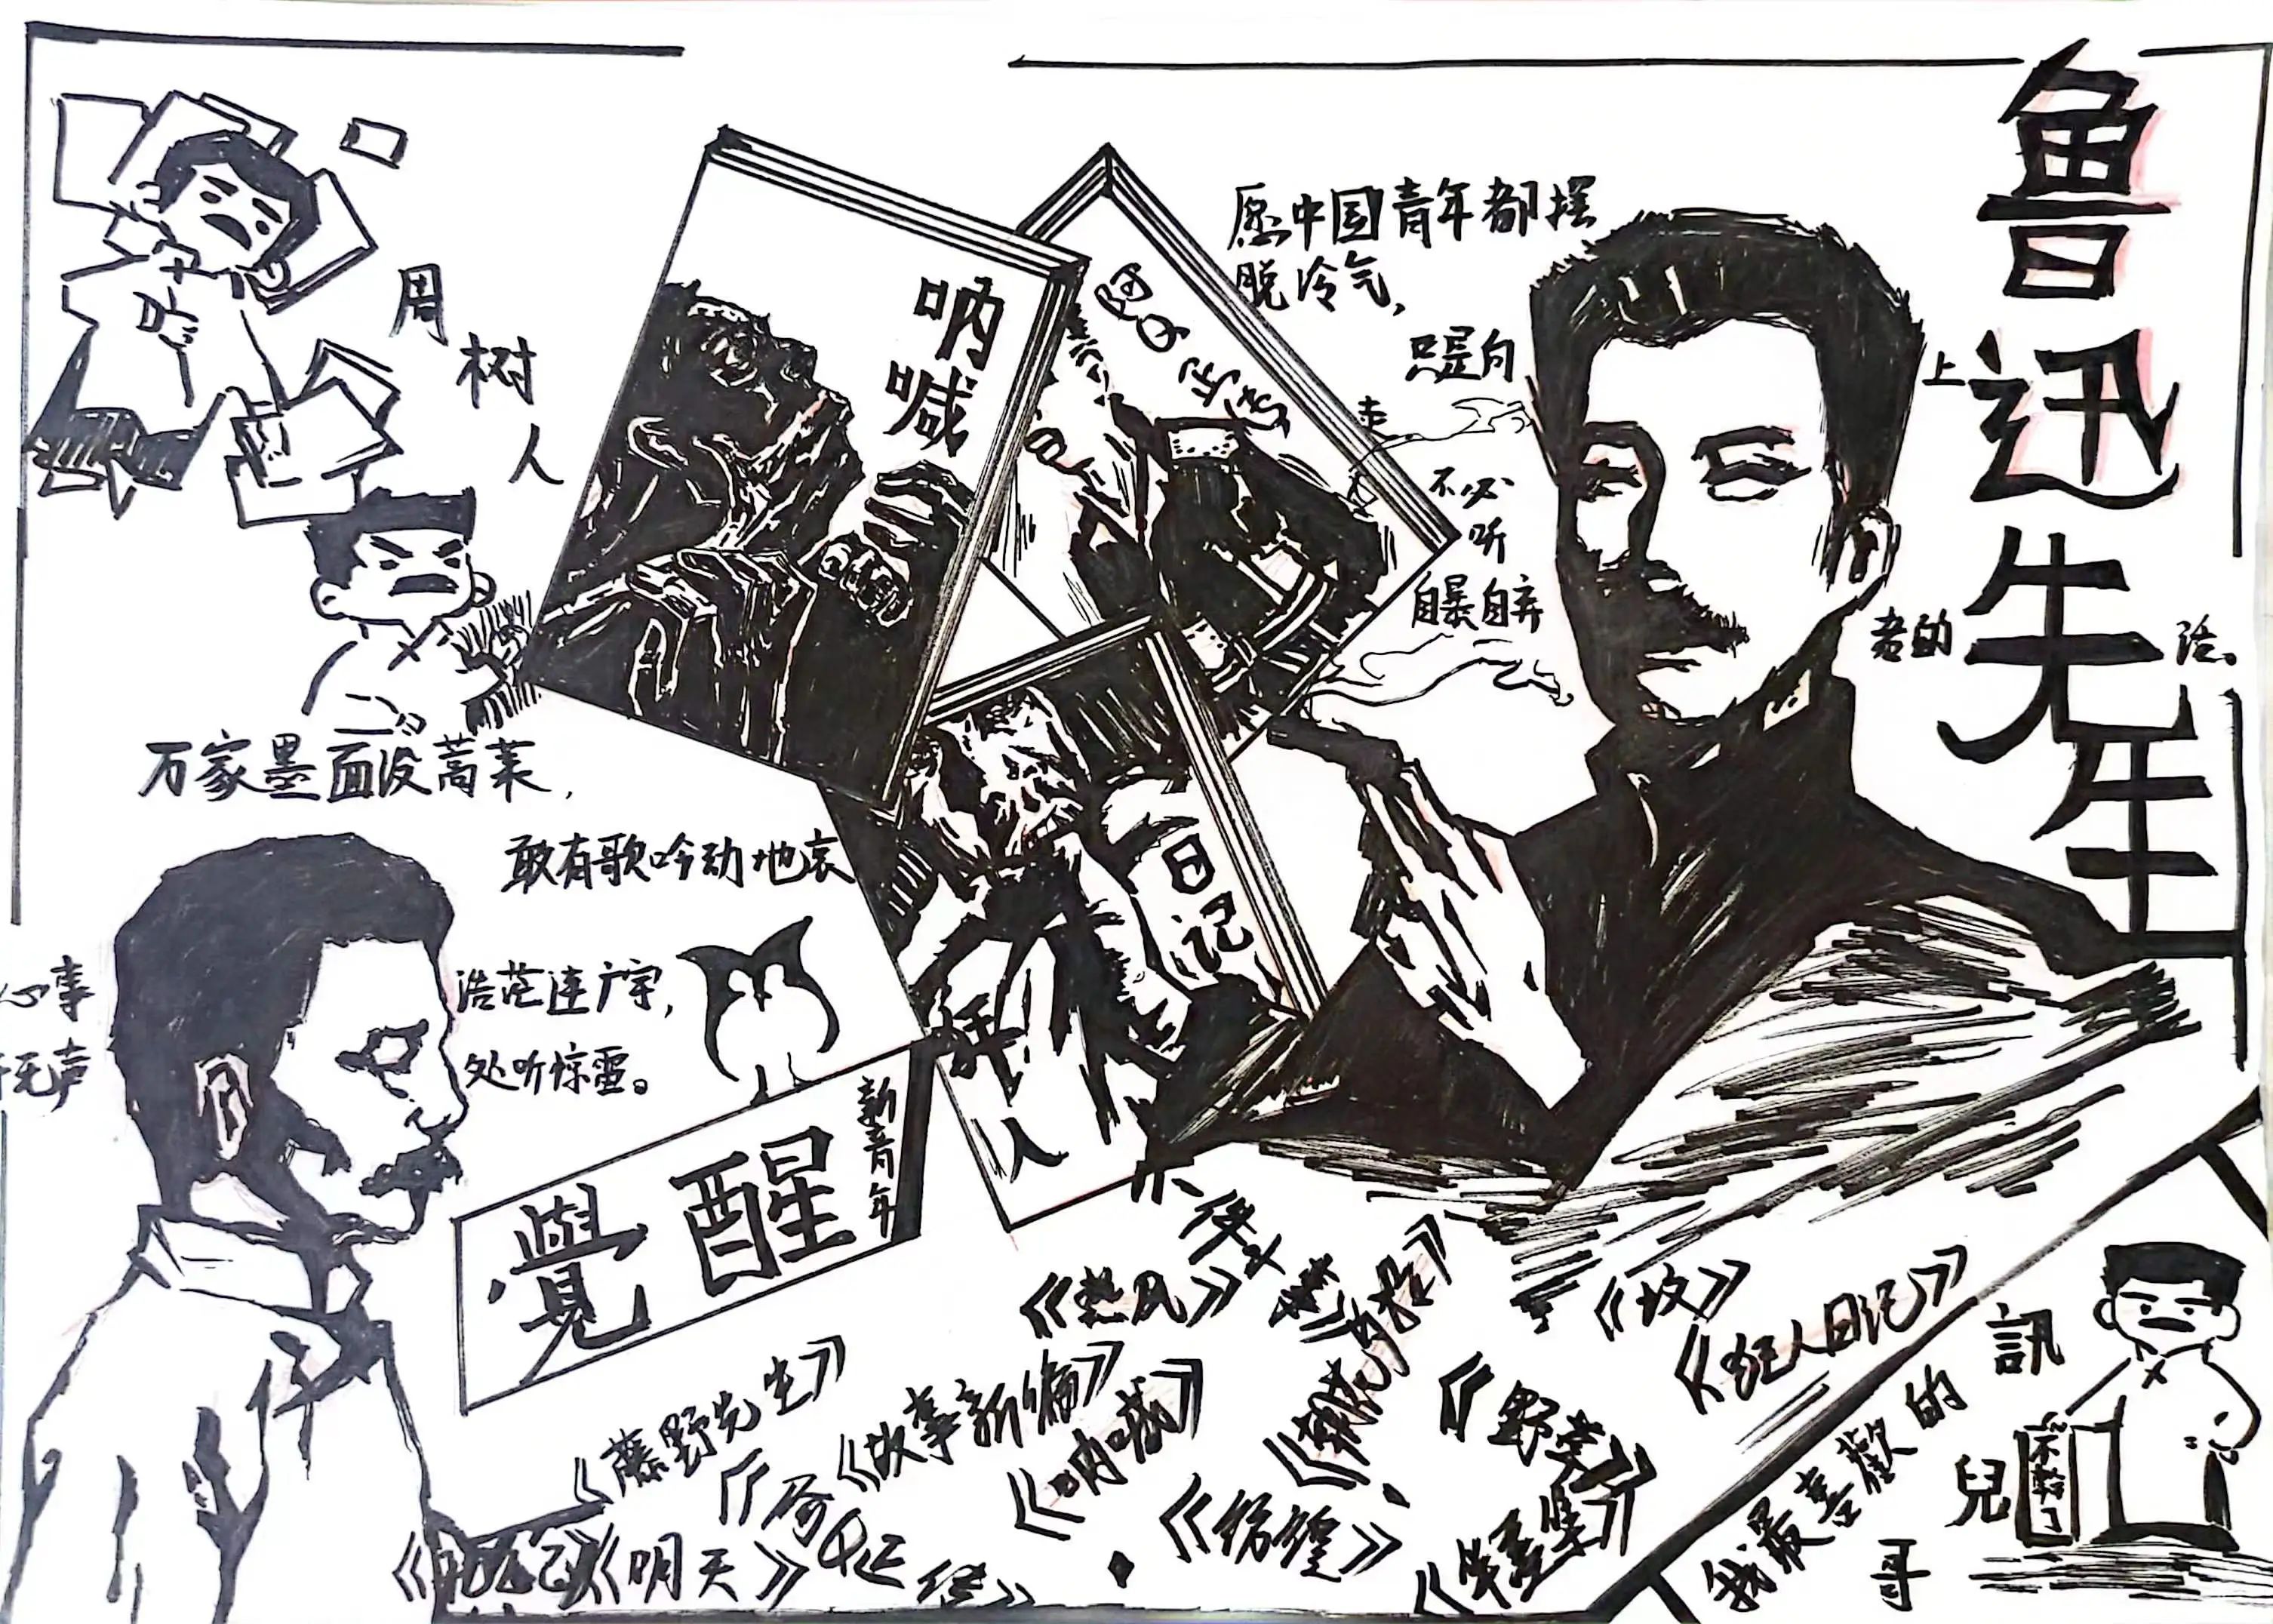 鲁迅先生
愿中国青年都摆
脱冷气,
只是向
上
走
不必
听
自暴自弃
者的
话。
周
树
人
呐
喊
阿Q
日
记
狂
人
万家墨面没蒿莱,
敢有歌吟动地哀
心事
浩茫连广宇,
无声
处听惊雷。
新青年
覺醒
《热风》
《坟》
《狂人日记》
《藤野先生》
《故事新编》
《呐喊》
《野草》
《彷徨》
《明天》
《阿Q正传》
我最喜歡的
訊
兒
哥
不幹了